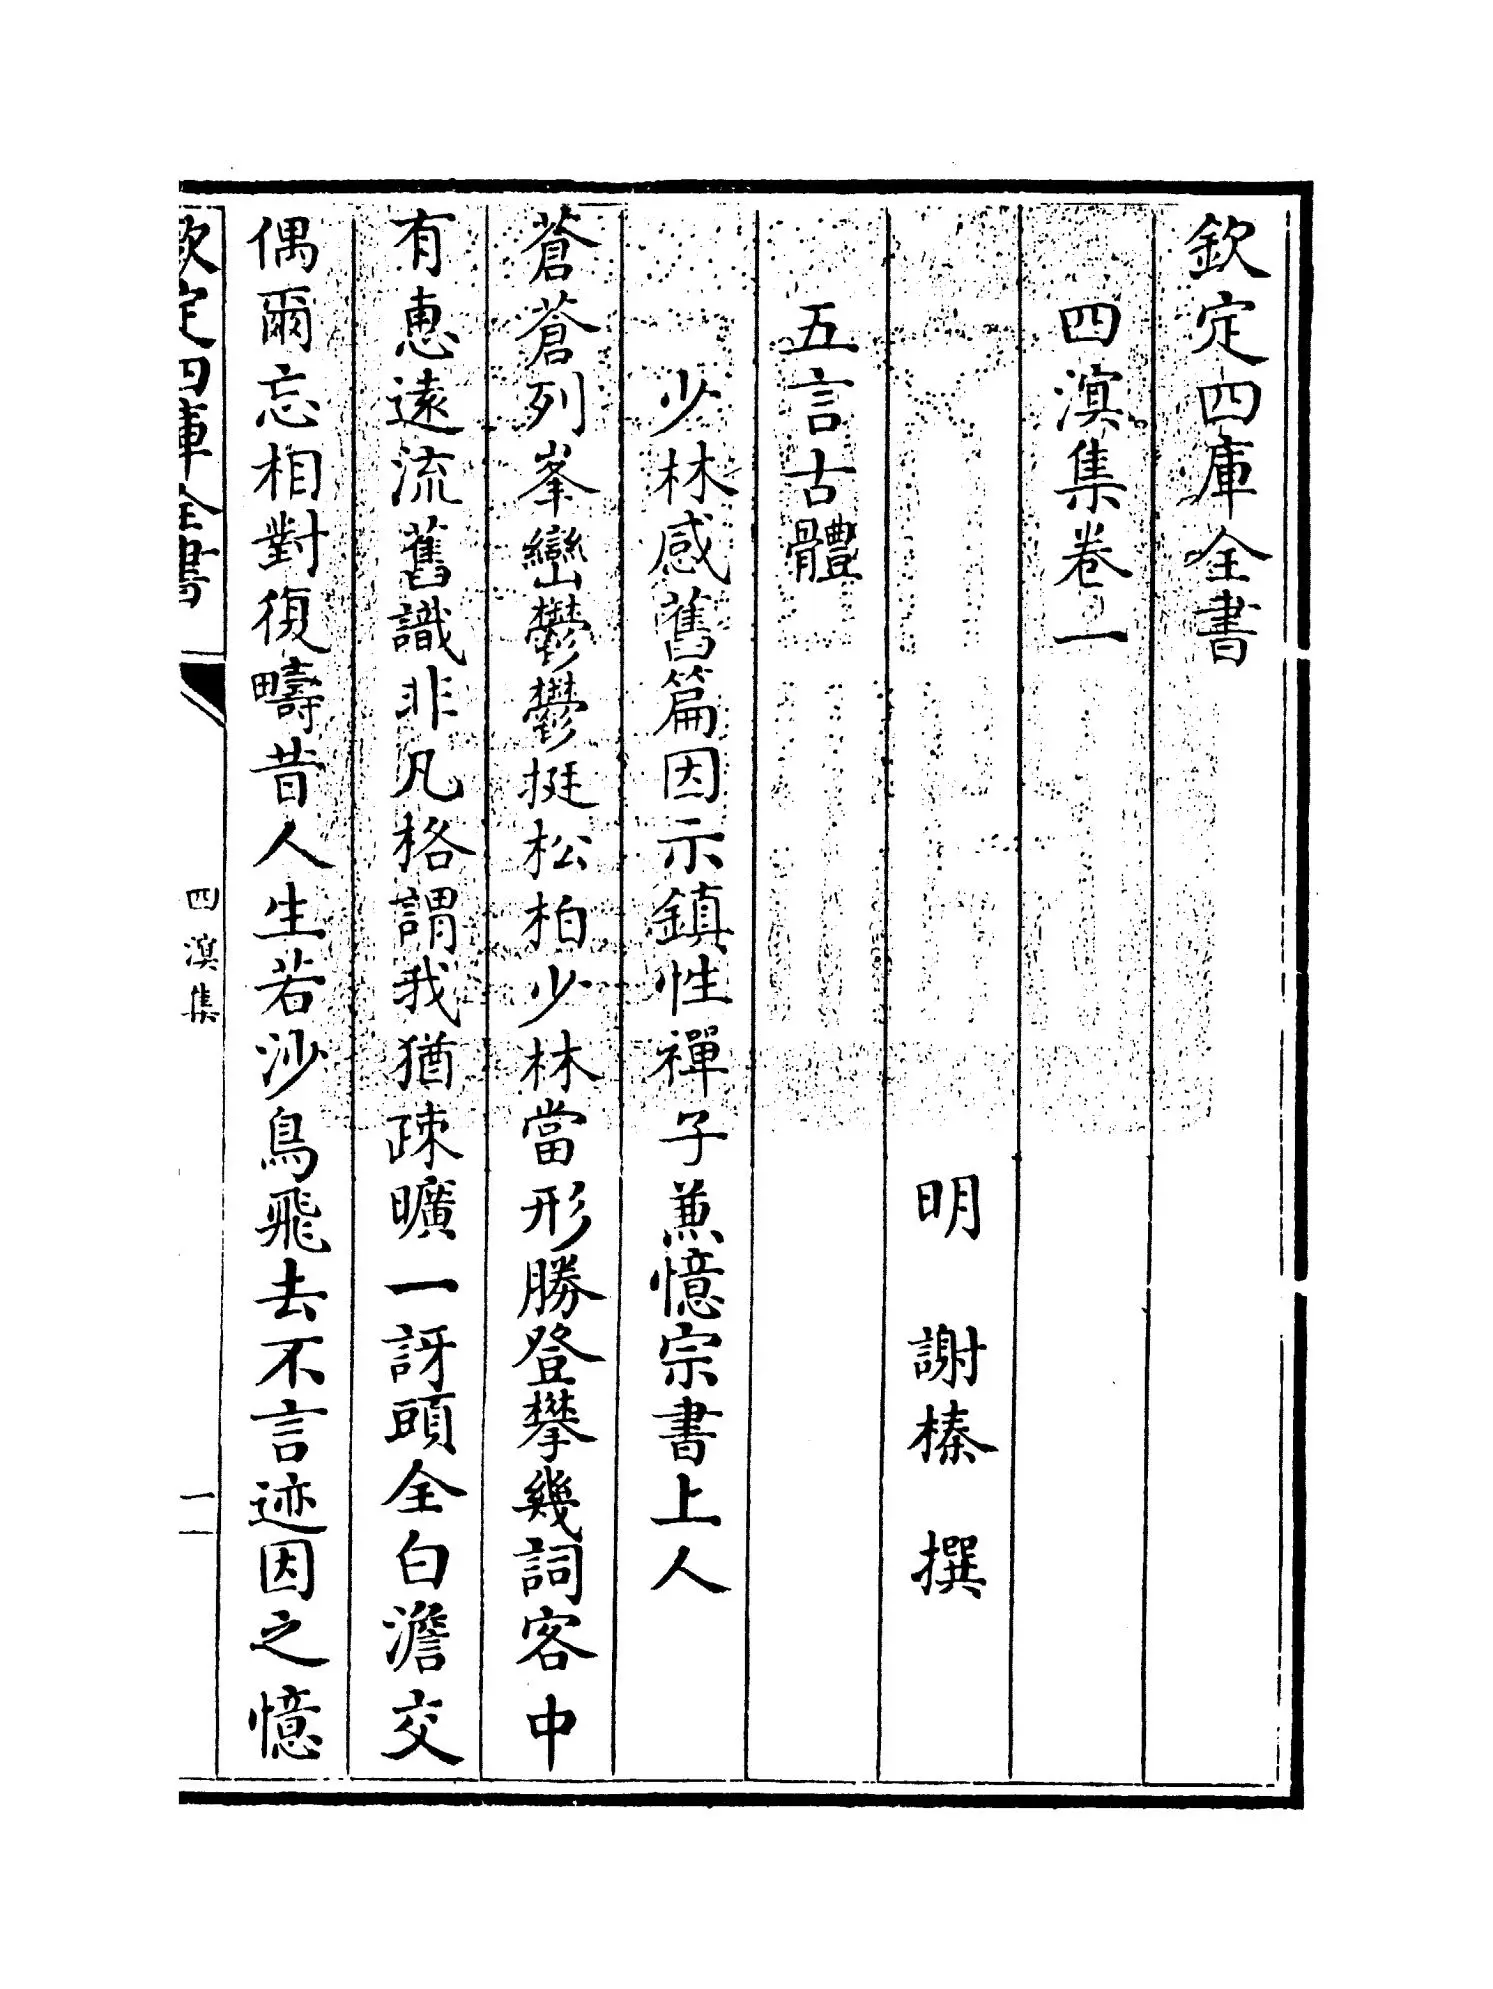 欽定四庫全書
四溟集卷一
明 謝榛 撰
五言古體
少林感舊篇因示鎮性禪子兼憶宗書上人
蒼蒼列峯巒鬱鬱挺松柏少林當形勝登攀幾詞客中
有惠遠流舊識非凡格謂我猶疎曠一訝頭全白澹交
偶爾忘相對復疇昔人生若沙鳥飛去不言迹因之憶
欽定四庫全書
四溟集
一